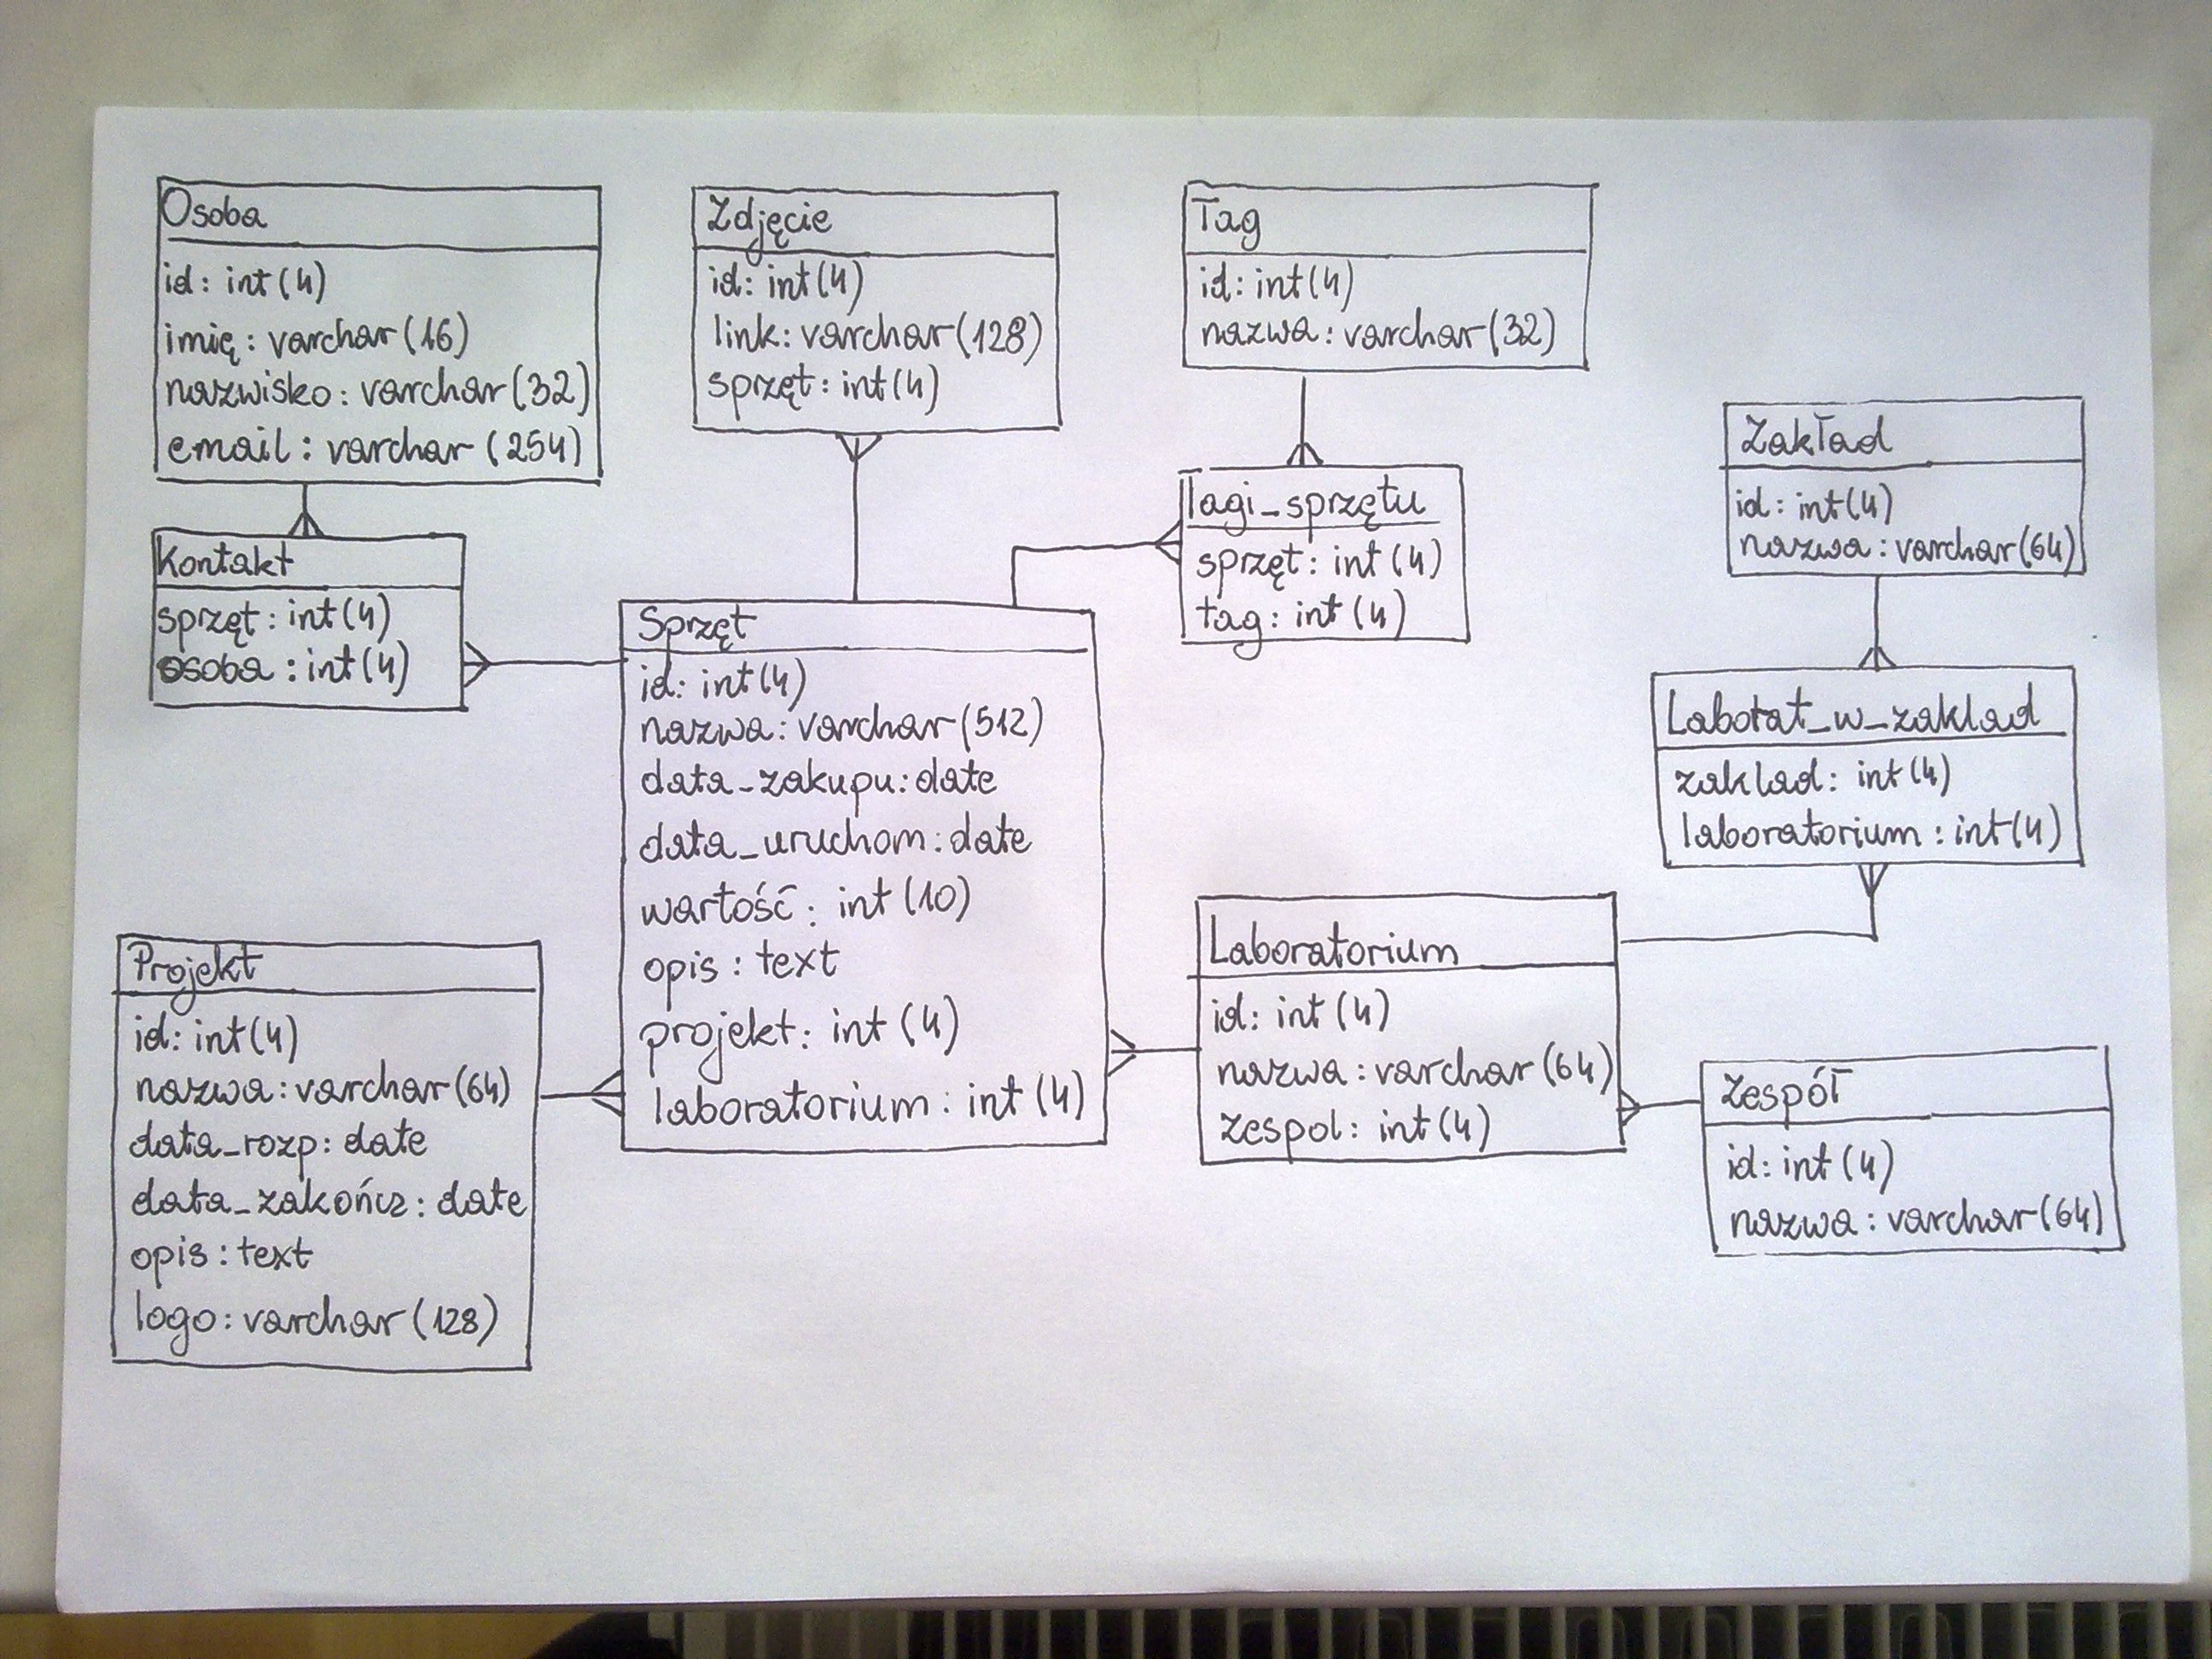 Osoba
id: int(4)
imię: varchar(16)
nazwisko: varchar(32)
email: varchar(254)
Zdjęcie
id: int(4)
link: varchar(128)
sprzęt: int(4)
Tag
id: int(4)
nazwa: varchar(32)
Zakład
id: int(4)
nazwa: varchar(64)
Kontakt
sprzęt: int(4)
osoba: int(4)
Tagi_sprzętu
sprzęt: int(4)
tag: int(4)
Sprzęt
id: int(4)
nazwa: varchar(512)
data_zakupu: date
data_uruchom: date
wartość: int(10)
opis: text
projekt: int(4)
laboratorium: int(4)
Laborat_w_zaklad
zaklad: int(4)
laboratorium: int(4)
Projekt
id: int(4)
nazwa: varchar(64)
data_rozp: date
data_zakończ: date
opis: text
logo: varchar(128)
Laboratorium
id: int(4)
nazwa: varchar(64)
zespol: int(4)
Zespół
id: int(4)
nazwa: varchar(64)